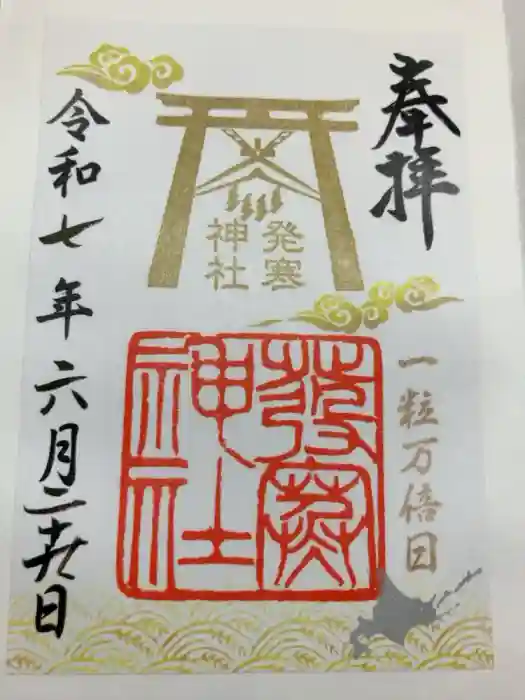 奉拝
発寒
神社
一粒万倍日
發寒
神社
令和七年六月二十八日